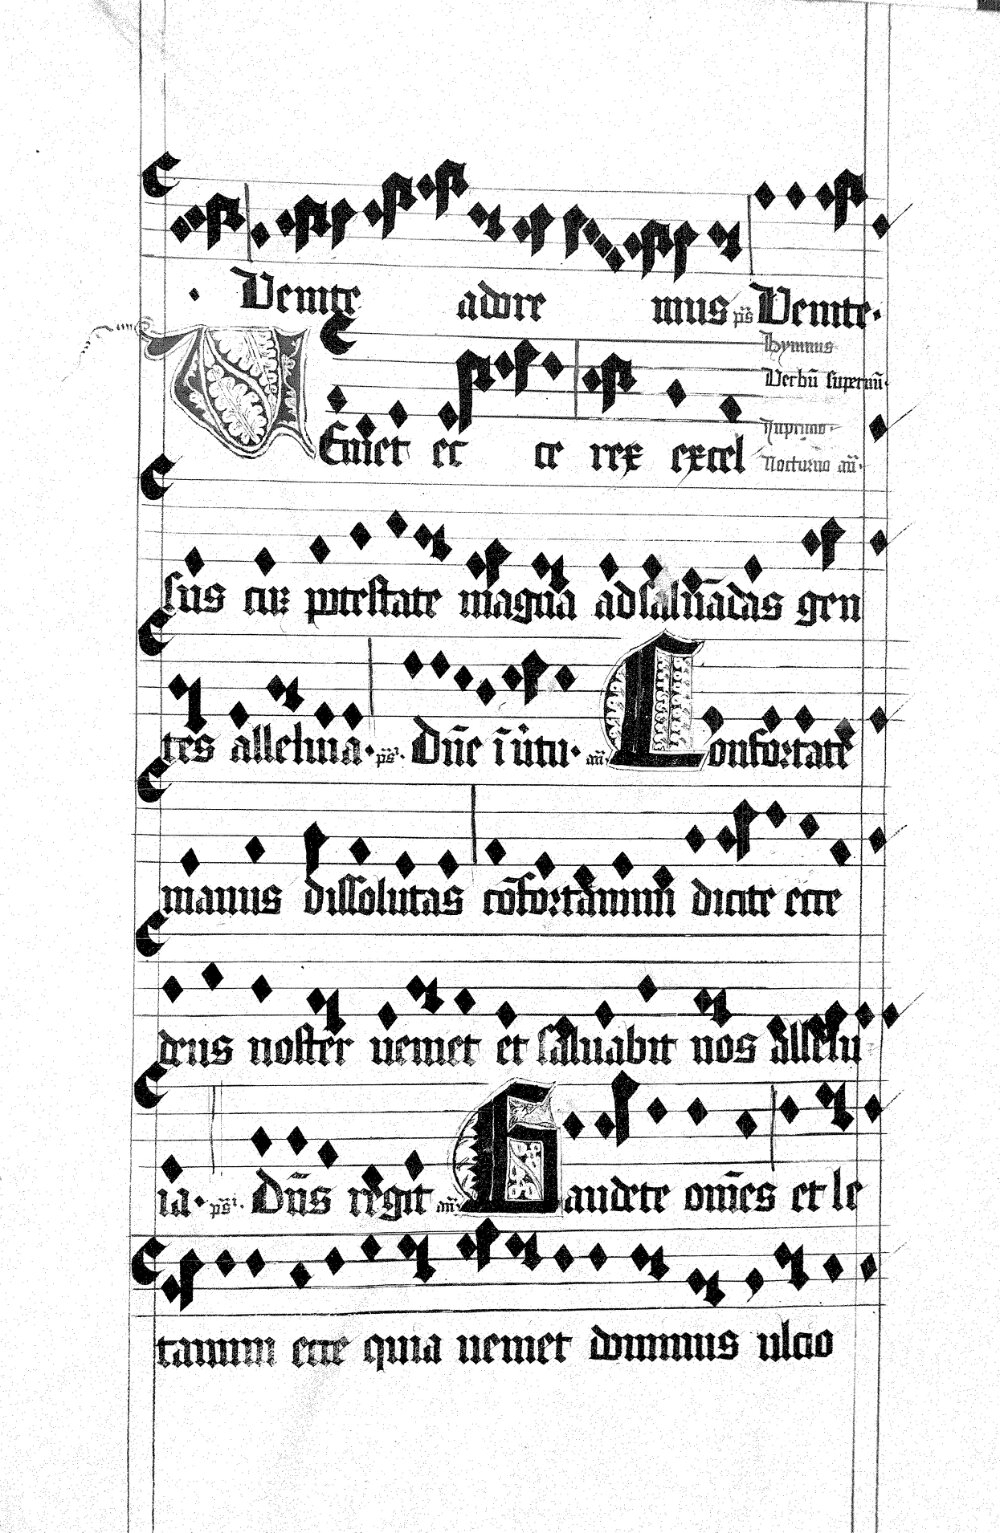 Venite adore mus ps̄ Venite.
hymnus
Verbū supernū.
Veniet ec ce rex excel
In primo
Nocturno an̄.
sus cuz potestate magna ad saluādas gen
tes alleluia. ps̄. Dn̄e ī uirtu. an̄. Confortate
manus dissolutas cōfortamini dicite ecce
deus noster ueniet et saluabit nos allelu
ia. ps̄. Dn̄s regit an̄. Gaudete om̄es et le
tamini ecce quia ueniet dominus ulcio